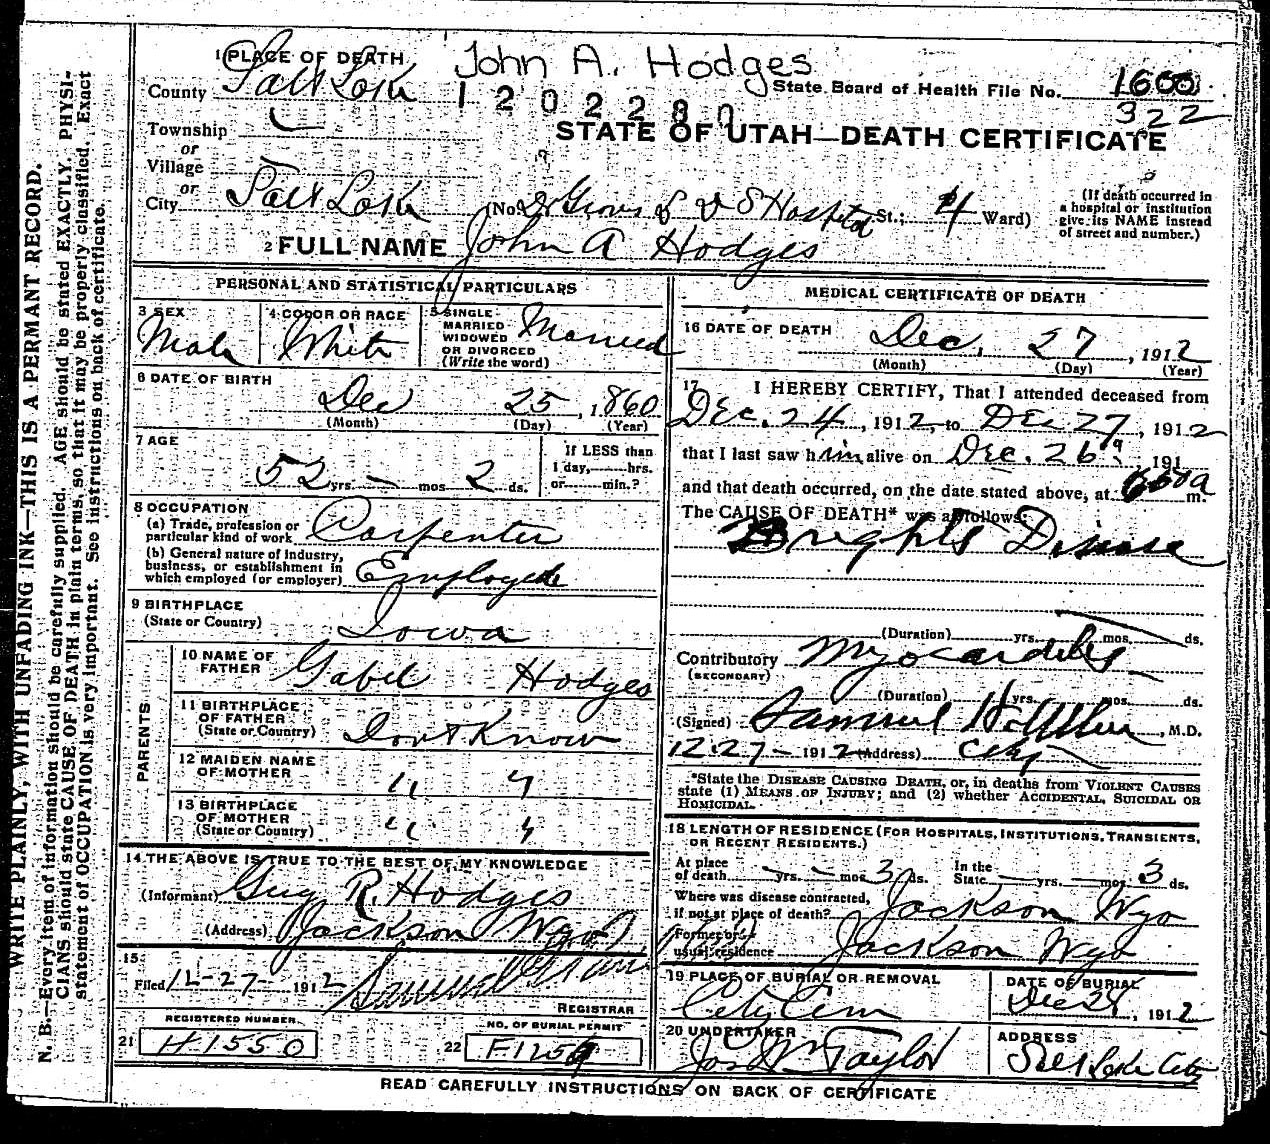 John A. Hodges
1 PLACE OF DEATH
County Salt Lake
1202280
State Board of Health File No. 1600
322
STATE OF UTAH—DEATH CERTIFICATE
Township
or
Village
or
City Salt Lake (No. Dr Groves L D S Hospital St.; 4 Ward)
(If death occurred in a hospital or institution give its NAME instead of street and number.)
2 FULL NAME John A Hodges
PERSONAL AND STATISTICAL PARTICULARS
3 SEX
Male
4 COLOR OR RACE
White
5 SINGLE
MARRIED
WIDOWED
OR DIVORCED
(Write the word)
Married
6 DATE OF BIRTH
Dec 25, 1860
(Month) (Day) (Year)
7 AGE
52 yrs. — mos 2 ds.
If LESS than
1 day, hrs.
or min.?
8 OCCUPATION
(a) Trade, profession or
particular kind of work Carpenter
(b) General nature of industry,
business, or establishment in
which employed (or employer) Employee
9 BIRTHPLACE
(State or Country) Iowa
PARENTS
10 NAME OF
FATHER Gabel Hodges
11 BIRTHPLACE
OF FATHER
(State or Country) Dont Know
12 MAIDEN NAME
OF MOTHER " "
13 BIRTHPLACE
OF MOTHER
(State or Country) " "
14 THE ABOVE IS TRUE TO THE BEST OF MY KNOWLEDGE
(Informant) Guy R. Hodges
(Address) Jackson Wyo
15
Filed 12-27- 1912 Samuel
REGISTRAR
REGISTERED NUMBER
21 H1550
NO. OF BURIAL PERMIT
22 F1259
MEDICAL CERTIFICATE OF DEATH
16 DATE OF DEATH Dec. 27, 1912
(Month) (Day) (Year)
17 I HEREBY CERTIFY, That I attended deceased from
Dec. 24, 1912, to Dec 27, 1912
that I last saw him alive on Dec. 26, 191
and that death occurred, on the date stated above, at 600a m.
The CAUSE OF DEATH* was as follows:
Brights Disease
(Duration) yrs. mos. ds.
Contributory Myocarditis
(SECONDARY)
(Duration) yrs. mos. ds.
(Signed) Samuel H, M.D.
12-27- 1912 (Address) City
*State the DISEASE CAUSING DEATH, or, in deaths from VIOLENT CAUSES
state (1) MEANS OF INJURY; and (2) whether ACCIDENTAL, SUICIDAL OR
HOMICIDAL.
18 LENGTH OF RESIDENCE (FOR HOSPITALS, INSTITUTIONS, TRANSIENTS,
OR RECENT RESIDENTS.)
At place
of death — yrs. — mos 3 ds.
In the
State — yrs. — mos. 3 ds.
Where was disease contracted,
if not at place of death? Jackson Wyo
Former or
usual residence Jackson Wyo
19 PLACE OF BURIAL OR REMOVAL
City Cem
DATE OF BURIAL
Dec 28, 1912
20 UNDERTAKER
Jos Wm Taylor
ADDRESS
Salt Lake City
READ CAREFULLY INSTRUCTIONS ON BACK OF CERTIFICATE
WRITE PLAINLY, WITH UNFADING INK—THIS IS A PERMANT RECORD.
N. B.—Every item of information should be carefully supplied. AGE should be stated EXACTLY. PHYSI-
CIANS should state CAUSE OF DEATH in plain terms, so that it may be properly classified. Exact
statement of OCCUPATION is very important. See instructions on back of certificate.